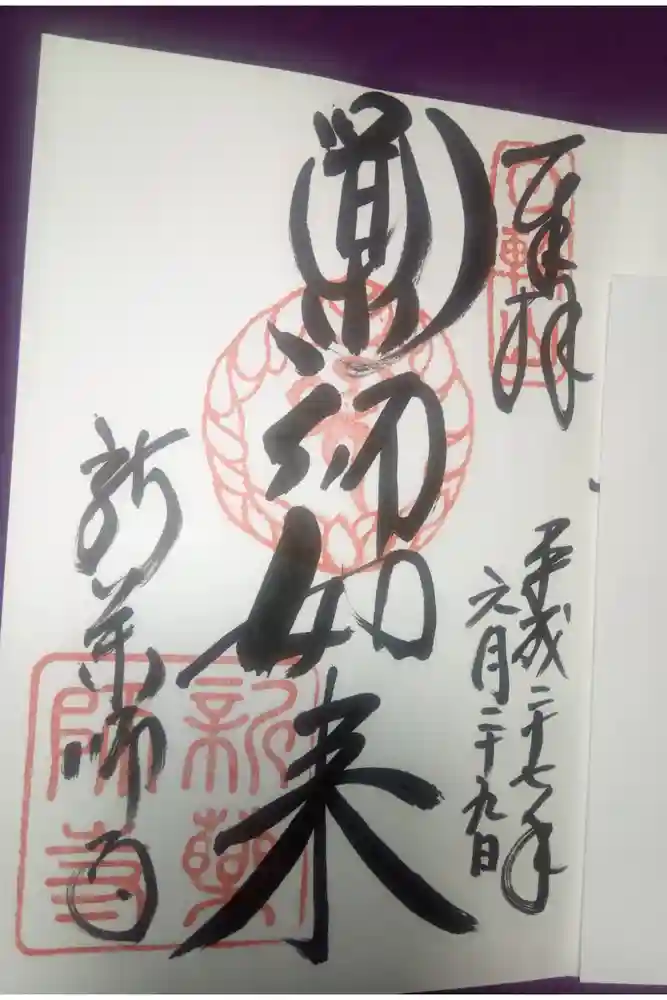 奉拝
平成二十七年
六月二十九日
薬師如来
新薬師寺
新薬師寺